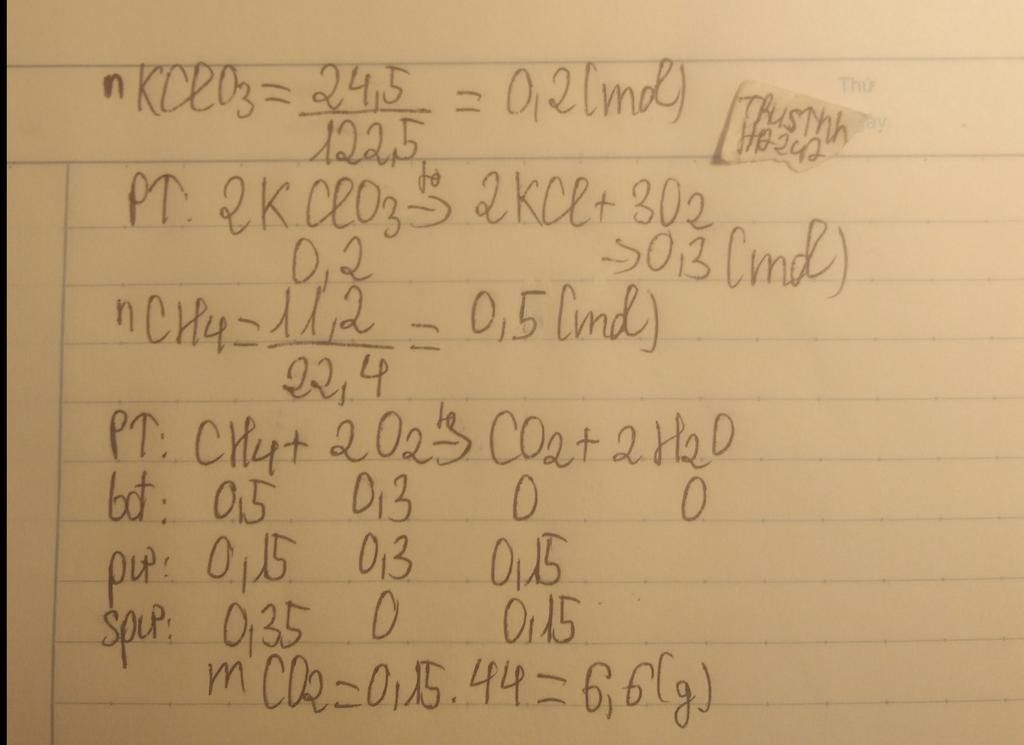 nKClO3 = 24,5 / 122,5 = 0,2 (mol)
Thứ
TRUSTnh
HD242
PT: 2KClO3 t° → 2KCl + 3O2
0,2 → 0,3 (mol)
nCH4 = 11,2 / 22,4 = 0,5 (mol)
PT: CH4 + 2O2 t° → CO2 + 2H2O
bđ: 0,5 0,3 0 0
pư: 0,15 0,3 0,15
spư: 0,35 0 0,15
mCO2 = 0,15 . 44 = 6,6 (g)